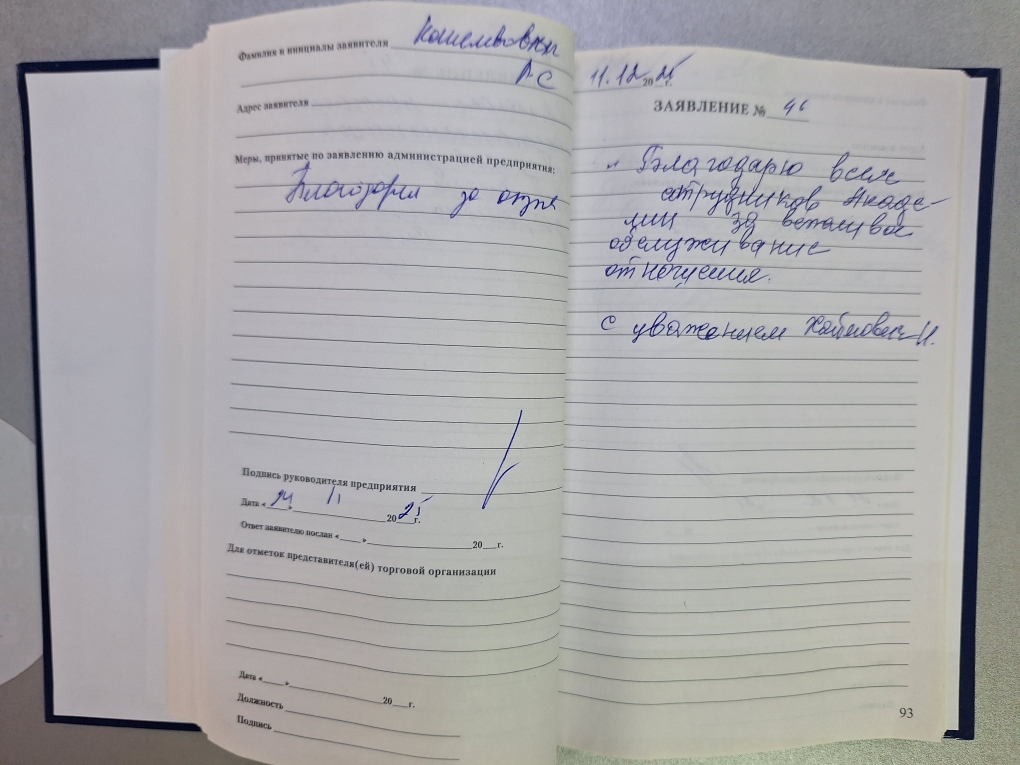 Фамилия и инициалы заявителя
А С
Адрес заявителя
Меры, принятые по заявлению администрацией предприятия:
Благодарим за отзыв
Подпись руководителя предприятия
Дата « 24 » 11 20 25 г.
Ответ заявителю послан «    »    20    г.
Для отметок представителя(ей) торговой организации
Дата «    »    20    г.
Должность
Подпись
11.12 20 25 г.
ЗАЯВЛЕНИЕ № 46
Благодарю всех
сотрудников Акаде-
мии за вежливое
обслуживание
отношения.
С уважением И.
93